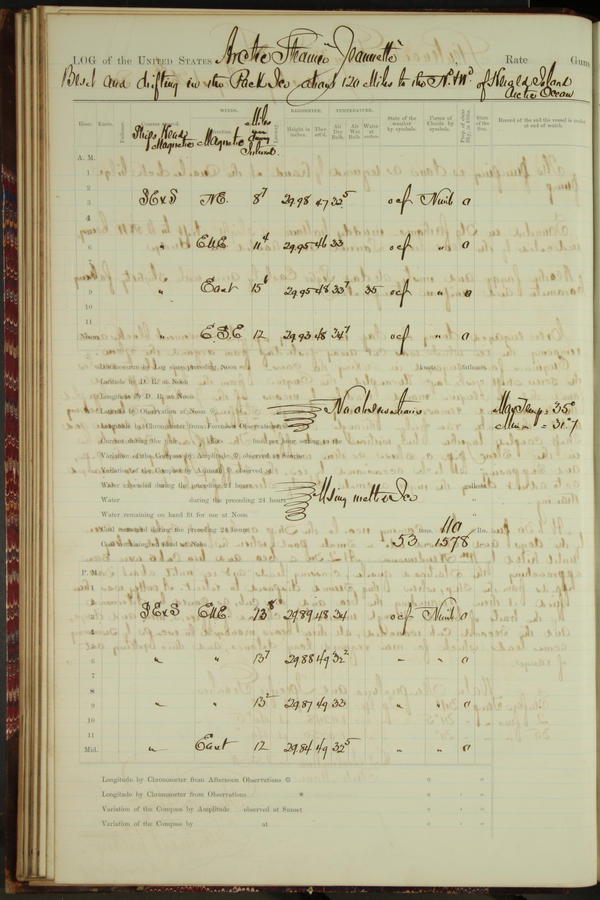 LOG of the UNITED STATES Arctic Steamer Jeannette Rate Guns
Beset and drifting in the Pack Ice about 120 Miles to the N. & Wd. of Herald Island
Arctic Ocean
WINDS. BAROMETER. TEMPERATURE.
Hour. Knots. Fathoms. Ships Head Magnetic Magnetic Miles Height in inches. Ther. att'd. Air Dry Bulb. Air Wet Bulb. Water at surface. State of the weather by symbols. Forms of Clouds by symbols. State of the Sea. Record of the sail the vessel is under at end of watch.
A. M.
1
2
3 S E & S N.E. 8 7 29.98 47 32 5 ocf Nimb 0
4
5
6 " E N E 11 4 29.95 46 33 ocf " 0
7
8
9 " East 15 6 29.95 48 33 7 35 ocf " 0
10
11
Noon " E.S.E 12 29.93 48 34 7 ocf " 0
Distance per Log since preceding Noon knots fathoms
Latitude by D. R. at Noon
Longitude by D. R. at Noon
Latitude by Observation at Noon No observations Max Temp = 35°
Longitude by Chronometer from Forenoon Observations Min " = 31° 7
Variation of the Compass by Amplitude observed at Sunrise
Variation of the Compass by Azimuth observed at
Water expended during the preceding 24 hours gallons
Water during the preceding 24 hours Using melted Ice
Water remaining on hand fit for use at Noon
Coal consumed during the preceding 24 hours tons, 110 lbs.
Coal remaining on hand at Noon 53 1578
P. M.
3 S E & S E N E 13 8 29.89 48 34 ocf Nimb 0
4
5
6 " " 13 7 29.88 49 32 2 " " 0
7
8
9 " " 13 2 29.87 49 33 " " 0
10
11
Mid. " East 12 29.84 49 32 5 " " 0
Longitude by Chronometer from Afternoon Observations
Longitude by Chronometer from Observations
Variation of the Compass by Amplitude observed at Sunset
Variation of the Compass by at